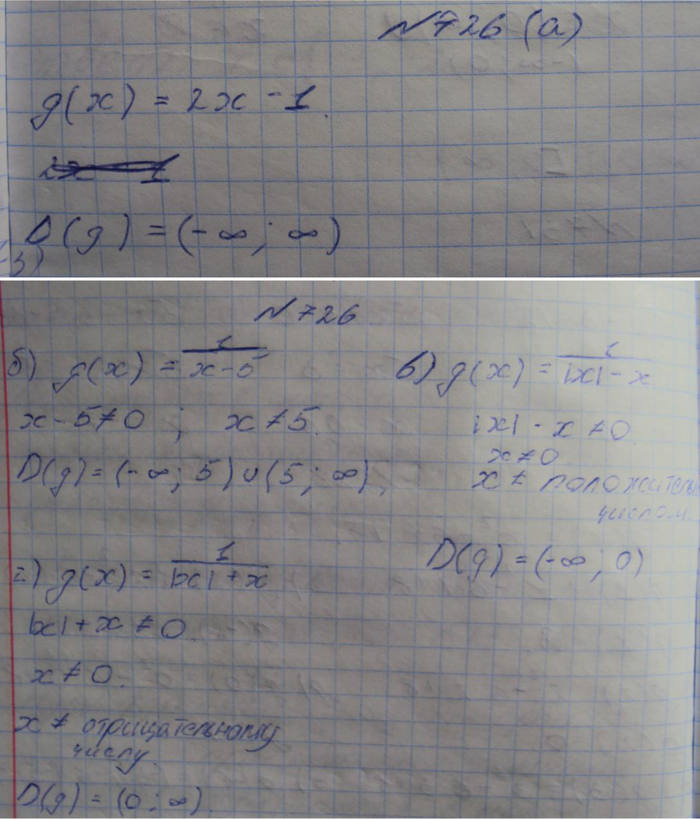 №726 (а)
g(x) = 2x - 1.
D(g) = (-∞; ∞)
№726
б) g(x) = 1/(x-5)
x - 5 ≠ 0 ; x ≠ 5.
D(g) = (-∞; 5) ∪ (5; ∞),
в) g(x) = 1/(|x| - x)
|x| - x ≠ 0
x ≠ 0
x ≠ положительн
числом.
D(g) = (-∞; 0)
г) g(x) = 1/(|x| + x)
|x| + x ≠ 0.
x ≠ 0.
x ≠ отрицательному
числу.
D(g) = (0; ∞).